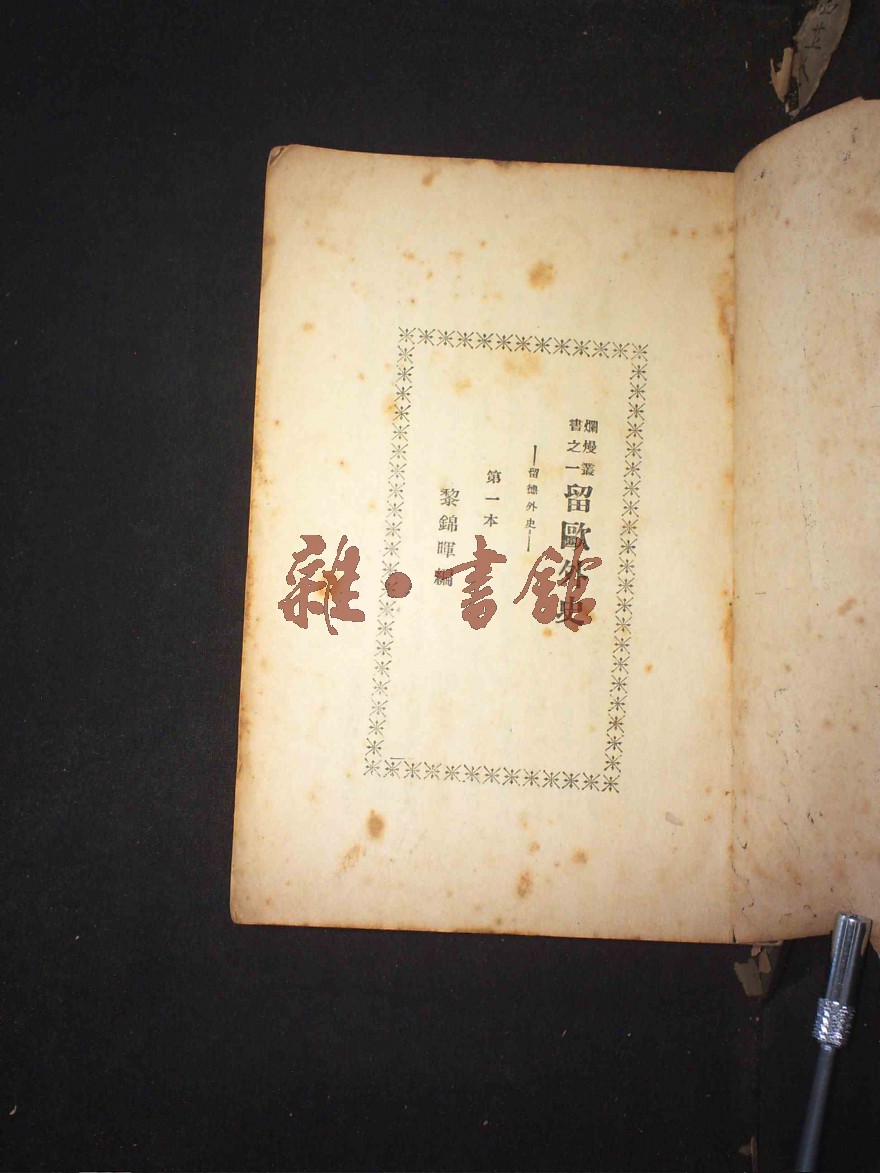 爛熳叢
書之一
留歐外史
——留德外史——
第一本
黎錦暉編
雜·書館